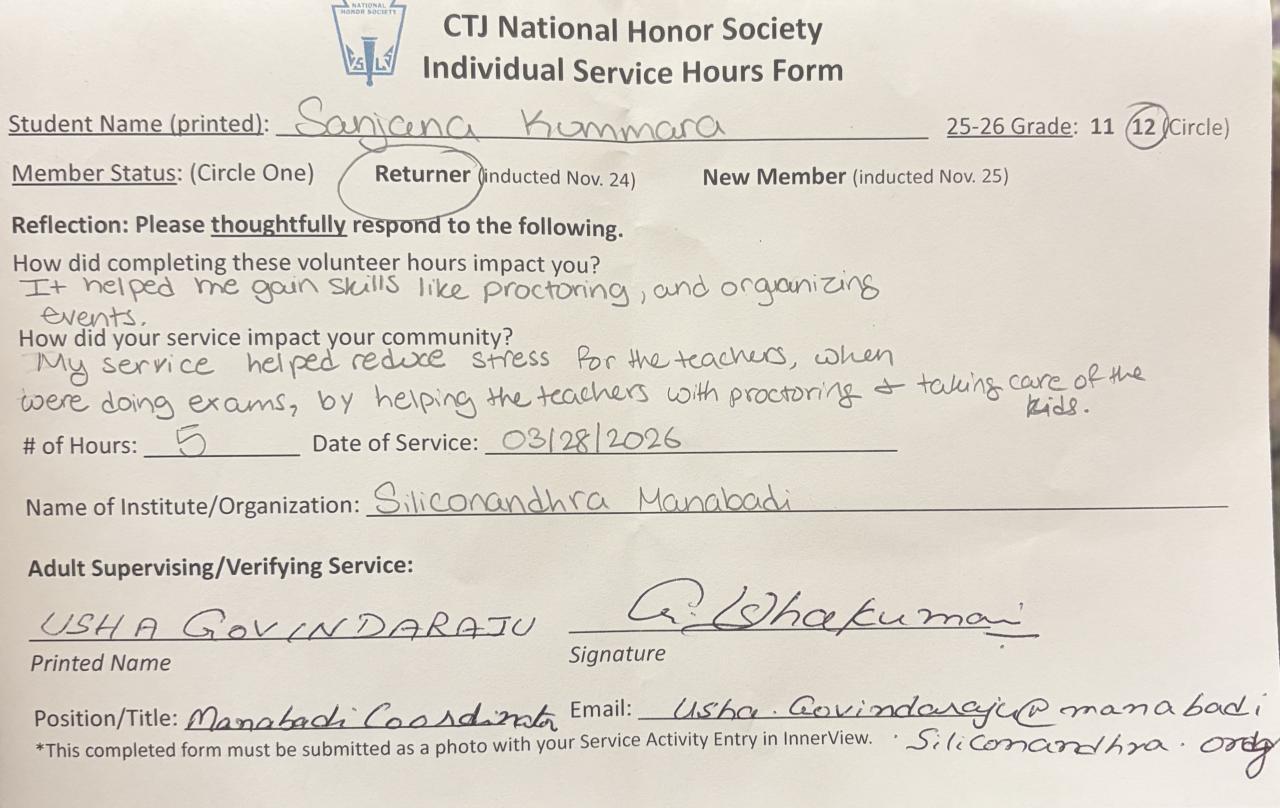 NATIONAL
HONOR SOCIETY
CTJ National Honor Society
Individual Service Hours Form
Student Name (printted): Sanjana Kummara 25-26 Grade: 11 12 (Circle)
Member Status: (Circle One) Returner (inducted Nov. 24) New Member (inducted Nov. 25)
Reflection: Please thoughtfully respond to the following.
How did completing these volunteer hours impact you?
It helped me gain skills like proctoring, and organizing
events.
How did your service impact your community?
My service helped reduce stress for the teachers, when
were doing exams, by helping the teachers with proctoring & taking care of the
kids.
# of Hours: 5 Date of Service: 03/28/2026
Name of Institute/Organization: Siliconandhra Manabadi
Adult Supervising/Verifying Service:
USHA GOVINDARAJU G. Ushakumari
Printed Name Signature
Position/Title: Manabadi Coordinator Email: Usha.Govindaraju@manabadi
*This completed form must be submitted as a photo with your Service Activity Entry in InnerView. . Siliconandhra. org